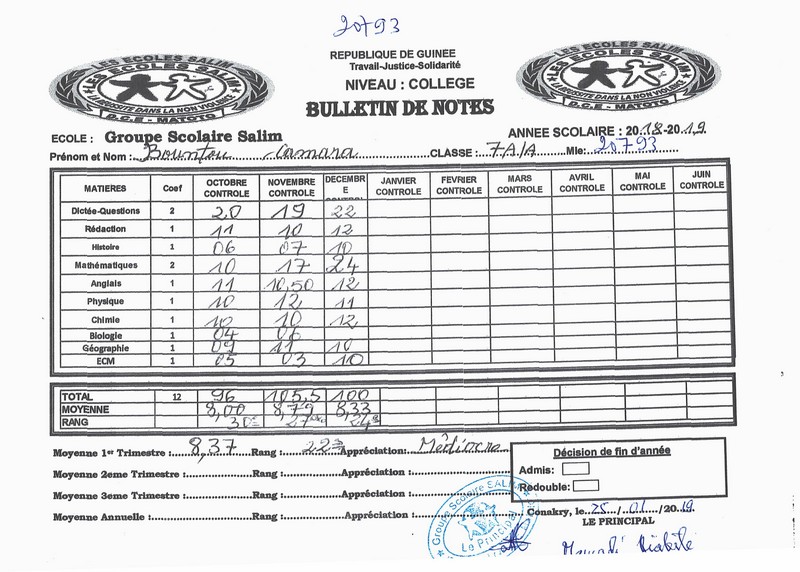 20793
LES ECOLES SALIM
LA REUSSITE DANS LA NON VIOLENCE
D.C.E - MATOTO
REPUBLIQUE DE GUINEE
Travail-Justice-Solidarité
NIVEAU : COLLEGE
BULLETIN DE NOTES
LES ECOLES SALIM
LA REUSSITE DANS LA NON VIOLENCE
D.C.E - MATOTO
ECOLE : Groupe Scolaire Salim ANNEE SCOLAIRE : 2018-2019
Prénom et Nom : Bountou Camara CLASSE : 7A/A Mle: 20793
MATIERES Coef OCTOBRE CONTROLE NOVEMBRE CONTROLE DECEMBRE JANVIER CONTROLE FEVRIER CONTROLE MARS CONTROLE AVRIL CONTROLE MAI CONTROLE JUIN CONTROLE
Dictée-Questions 2 20 19 22
Rédaction 1 11 10 12
Histoire 1 06 07 10
Mathématiques 2 10 17 24
Anglais 1 11 10,50 12
Physique 1 10 12 11
Chimie 1 10 10 12
Biologie 1 04 06
Géographie 1 09 11 10
ECM 1 05 03 10
TOTAL 12 96 105,5 100
MOYENNE 8,00 8,79 8,33
RANG 30è 27 24è
Moyenne 1er Trimestre : 8,37 Rang : 22è Appréciation: Médiocre
Moyenne 2eme Trimestre : Rang : Appréciation:
Moyenne 3eme Trimestre : Rang : Appréciation:
Moyenne Annuelle : Rang : Appréciation:
Décision de fin d'année
Admis:
Redouble:
Groupe Scolaire SALIM
Le Principal
Conakry, le 25/01/2019
LE PRINCIPAL